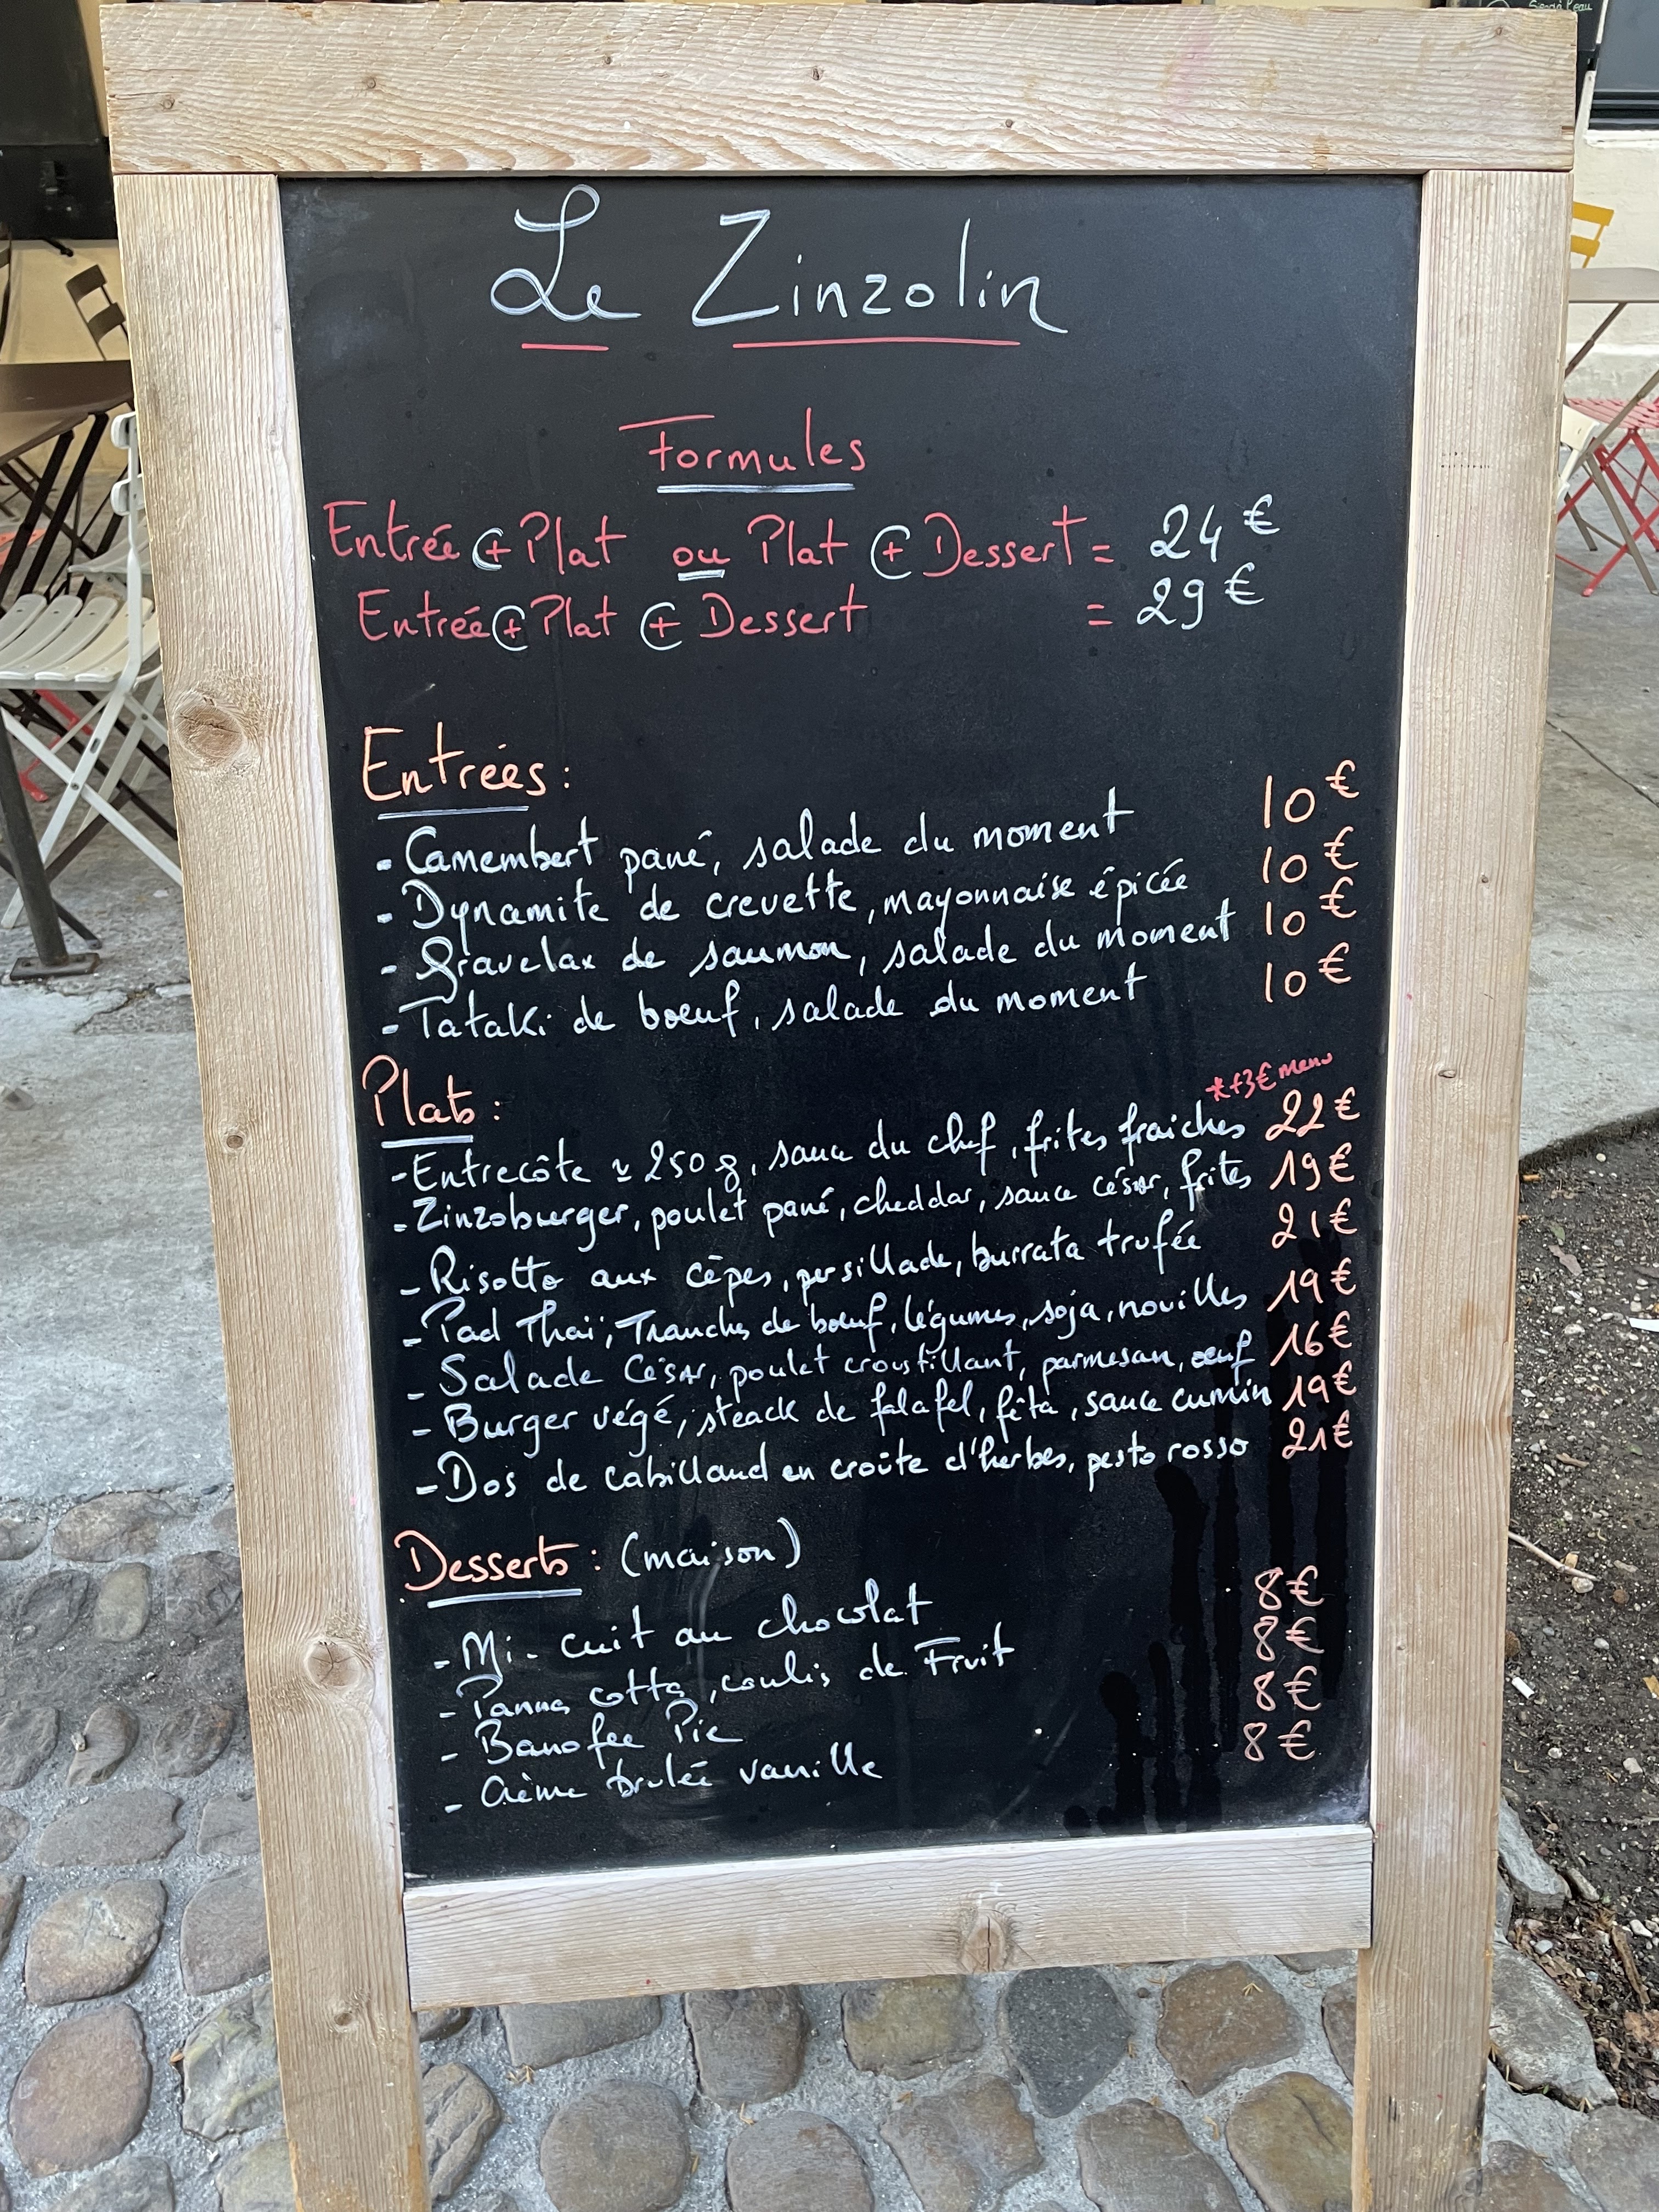 Le Zinzolin
Formules
Entrée + Plat ou Plat + Dessert = 24€
Entrée + Plat + Dessert = 29€
Entrées :
- Camembert pané, salade du moment 10€
- Dynamite de crevette, mayonnaise épicée 10€
- Gravelax de saumon, salade du moment 10€
- Tataki de bœuf, salade du moment 10€
Plats :
*+3€ menu
- Entrecôte ≈ 250g, sauce du chef, frites fraiches 22€
- Zinzoburger, poulet pané, cheddar, sauce césar, frites 19€
- Risotto aux cêpes, persillade, burrata trufée 21€
- Pad Thaï, Tranches de bœuf, légumes, soja, nouilles 19€
- Salade César, poulet croustillant, parmesan, œuf 16€
- Burger végé, steack de falafel, fêta, sauce cumin 19€
- Dos de cabillaud en croûte d'herbes, pesto rosso 21€
Desserts : (maison)
- Mi-cuit au chocolat 8€
- Panna cotta, coulis de Fruit 8€
- Banofee Pie 8€
- Crème brulée vanille 8€